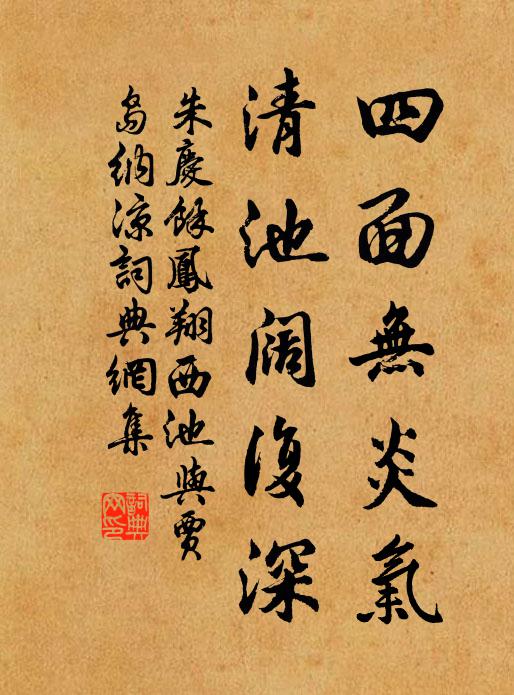 四面無炎氣
清池闊復深
朱慶餘鳳翔西池與賈
島納涼詞典網集
詞典網印